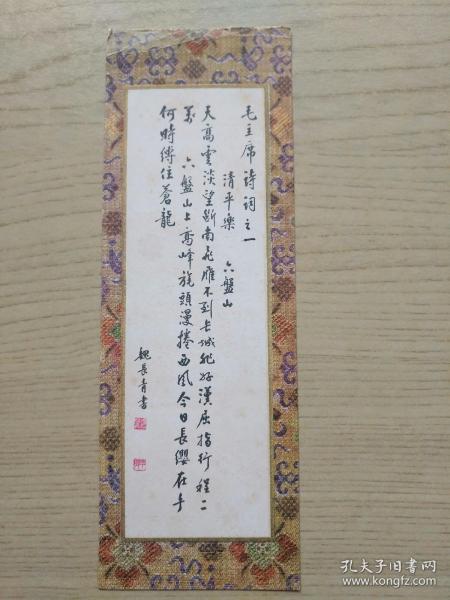 毛主席诗词之一
清平樂 六盤山
天高雲淡望断南飛雁不到长城非好漢屈指行程二
萬 六盤山上高峰旄頭漫捲西風今日長纓在手
何時縛住蒼龍
魏長青書
孔夫子旧书网
www.kongfz.com